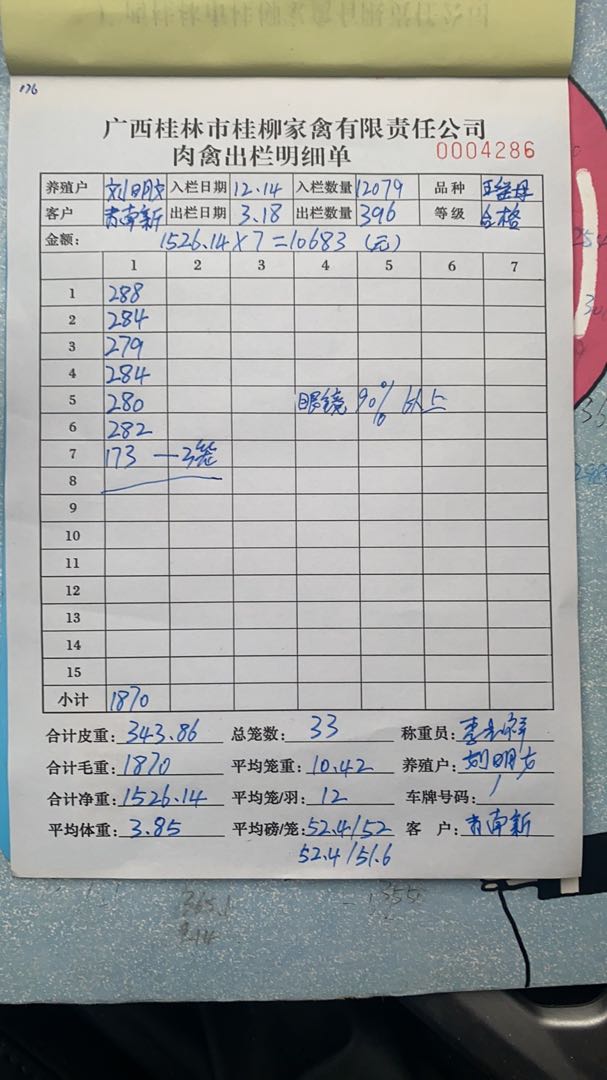 176
广西桂林市桂柳家禽有限责任公司
肉禽出栏明细单 0004286
养殖户 刘明文 入栏日期 12.14 入栏数量 12079 品种
客户 肖南新 出栏日期 3.18 出栏数量 396 等级 合格
金额: 1526.14×7=10683 (元)
1 2 3 4 5 6 7
1 288
2 284
3 279
4 284
5 280 眼镜 90% 以上
6 282
7 173 —3笼
8
9
10
11
12
13
14
15
小计 1870
合计皮重: 343.86 总笼数: 33 称重员:
合计毛重: 1870 平均笼重: 10.42 养殖户: 刘明文
合计净重: 1526.14 平均笼/羽: 12 车牌号码: /
平均体重: 3.85 平均磅/笼: 52.4/52 客 户: 肖南新
52.4/51.6